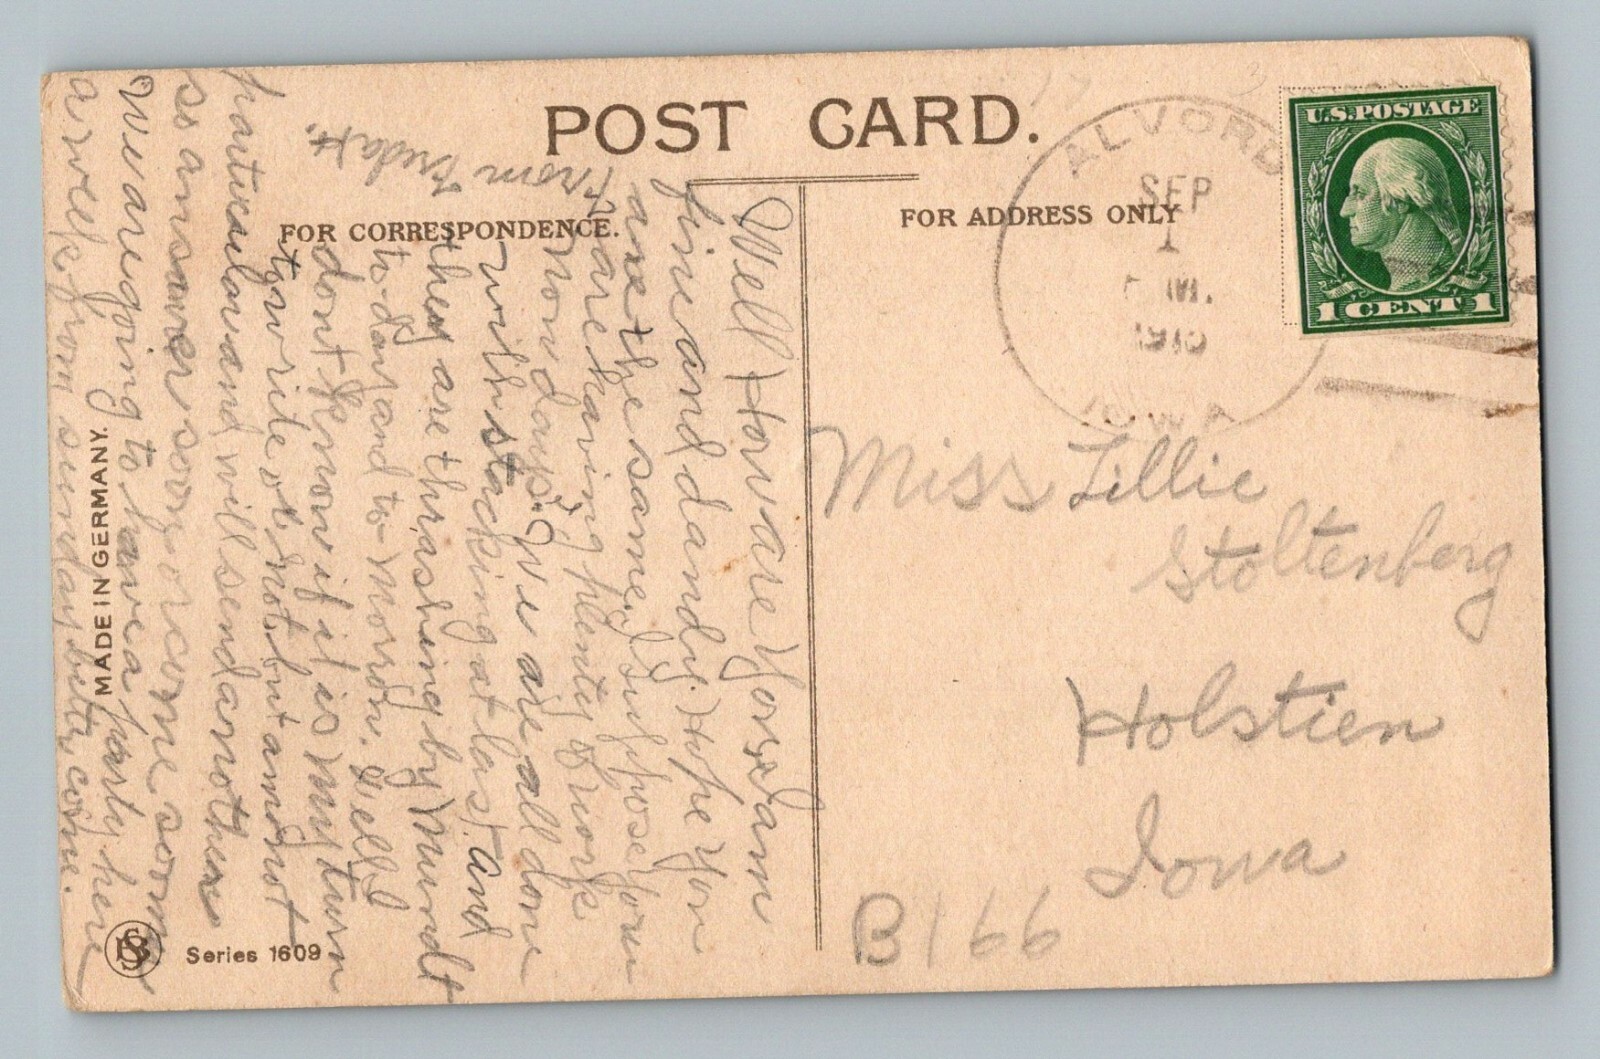 POST CARD.
FOR CORRESPONDENCE.
FOR ADDRESS ONLY
ALVORD
SEP
1
M.
IOWA
U.S. POSTAGE
1 CENT 1
Miss Lillie
Stoltenberg
Holstien
Iowa
B166
Well How are You. I am
fine and dandy. Hope you
are the same. I suppose you
are having plenty of work
now days. We are all done
with stacking at last and
they are thrashing by Mundt
to-day and to-morrow. Well I
dont know if it is my turn
to write or not but am not
particular and will send another
so answer soon or come soon
We are going to have a party here
a week from sunday better come.
From
MADE IN GERMANY.
Series 1609